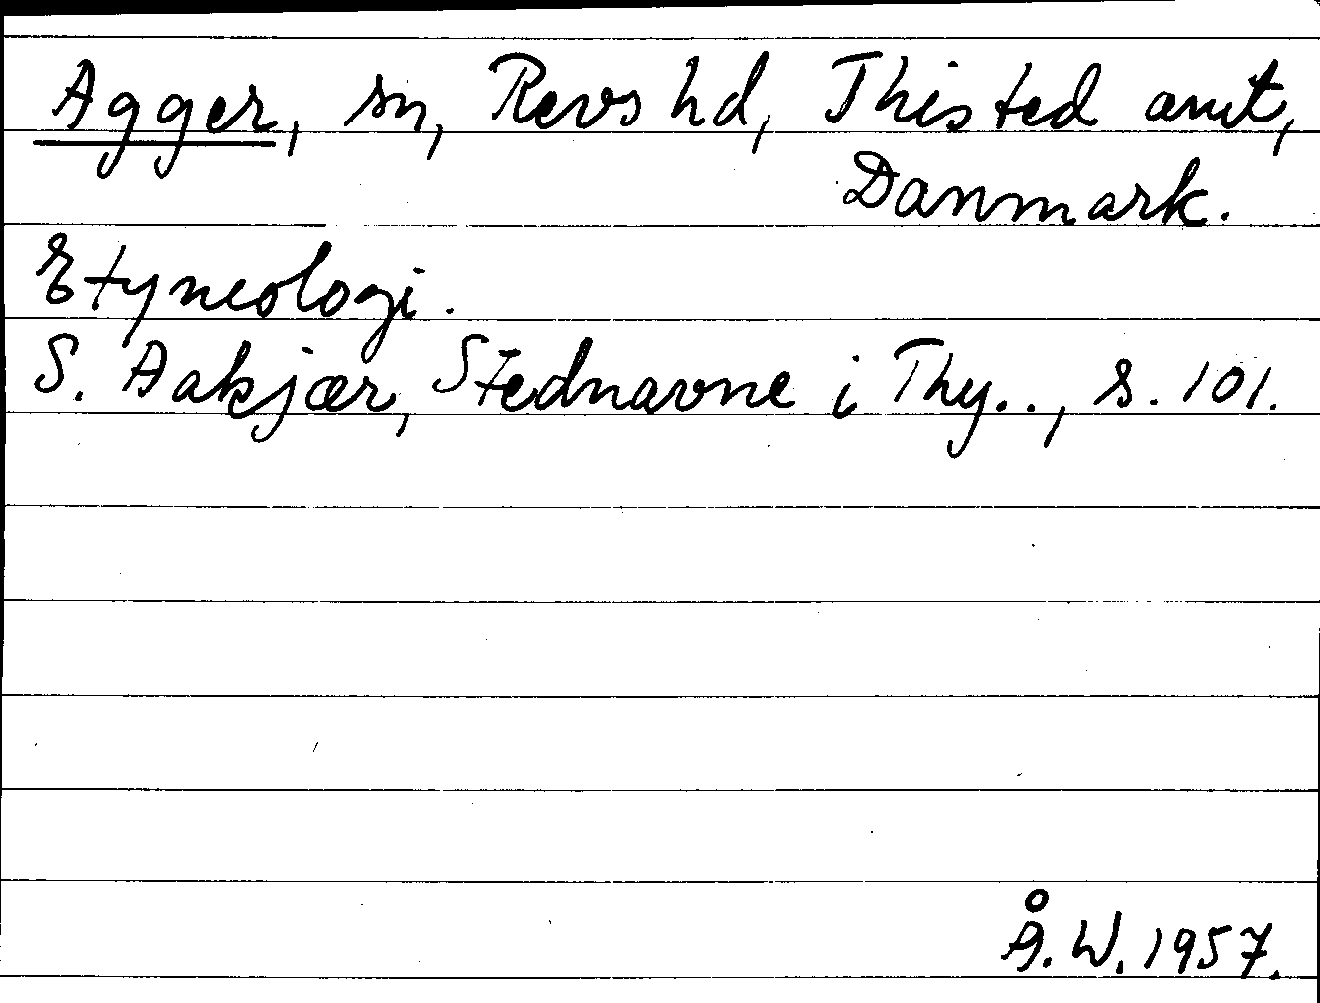 Agger, sn, Revs hd, Thisted amt,
Danmark.
Etymologi.
S. Aakjær, Stednavne i Thy.., s. 101.
Å. W. 1957.